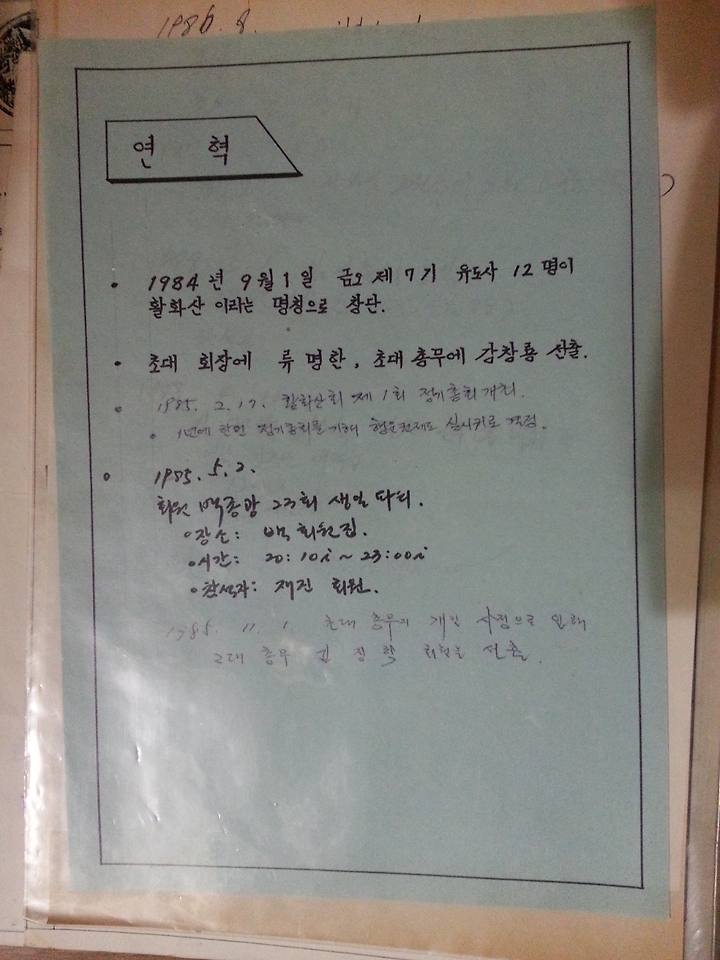 1986. 8.
연 혁
• 1984년 9월 1일 금오 제 7기 유도사 12명이
활화산 이라는 명칭으로 창단.
• 초대 회장에 류명한, 초대 총무에 강창룡 선출.
• 1985. 2. 17. 활화산회 제 1회 정기총회 개최.
• 1년에 한번 정기총회를 기해 실시키로 결정.
• 1985. 5. 2.
회원 백종광 23회 생일 파티.
• 장소: 백 회원집.
• 시간: 20:10시 ~ 23:00시
• 참석자: 재진 회원.
1985. 11. 1. 초대 총무의 개인 사정으로 인해
2대 총무 김 창 학 회원을 선출.